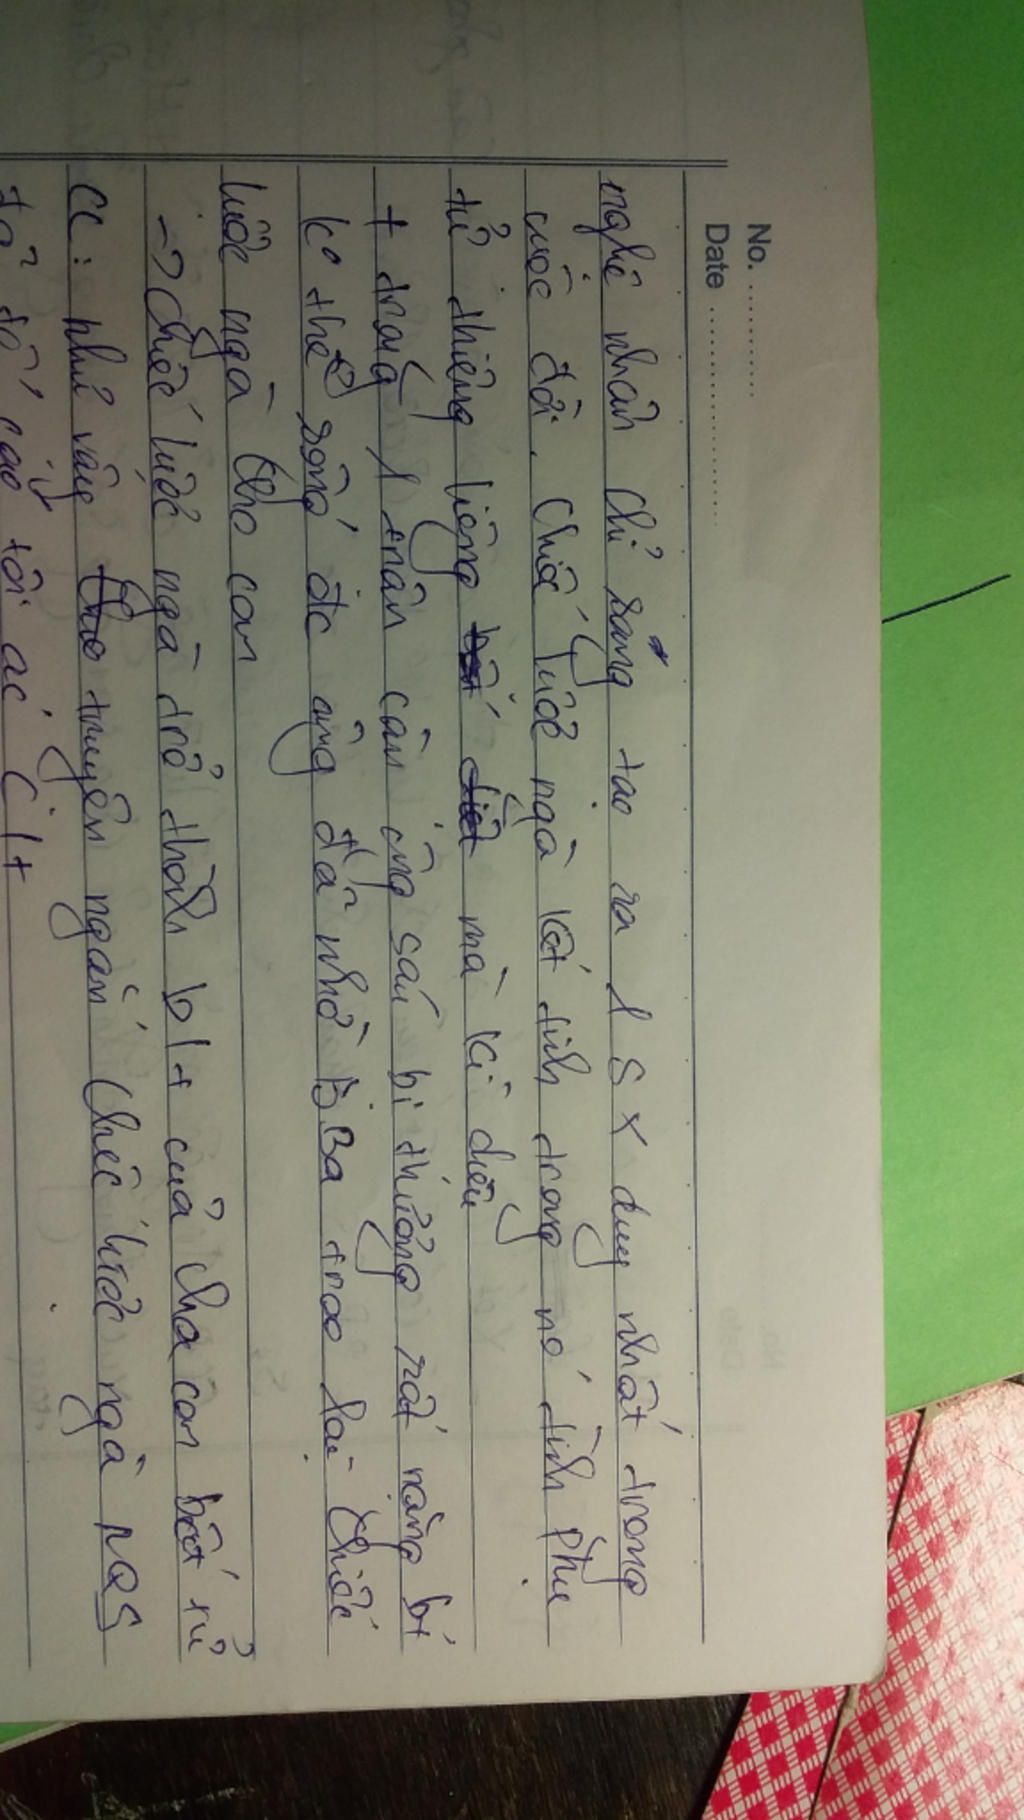 No. ............
Date ........................
nghệ nhân chỉ sáng tạo ra 1 S X duy nhất trong
cuộc đời. Chiếc lược ngà kết tinh trong nó tình phụ
tử thiêng liêng mà kì diệu
+ trong 1 trận càn ông sáu bị thương rất nặng bt
k° thể sống đc ông đã nhờ B.Ba trao lại chiếc
lược ngà cho con
-> Chiếc lược ngà trở thành b/t của cha con bất tử
CC: như vậy truyện ngắn Chiếc lược ngà NQS